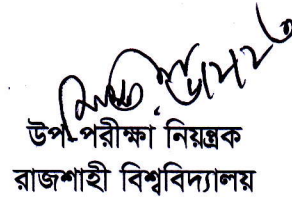 উপ-পরীক্ষা নিয়ন্ত্রক
রাজশাহী বিশ্ববিদ্যালয়